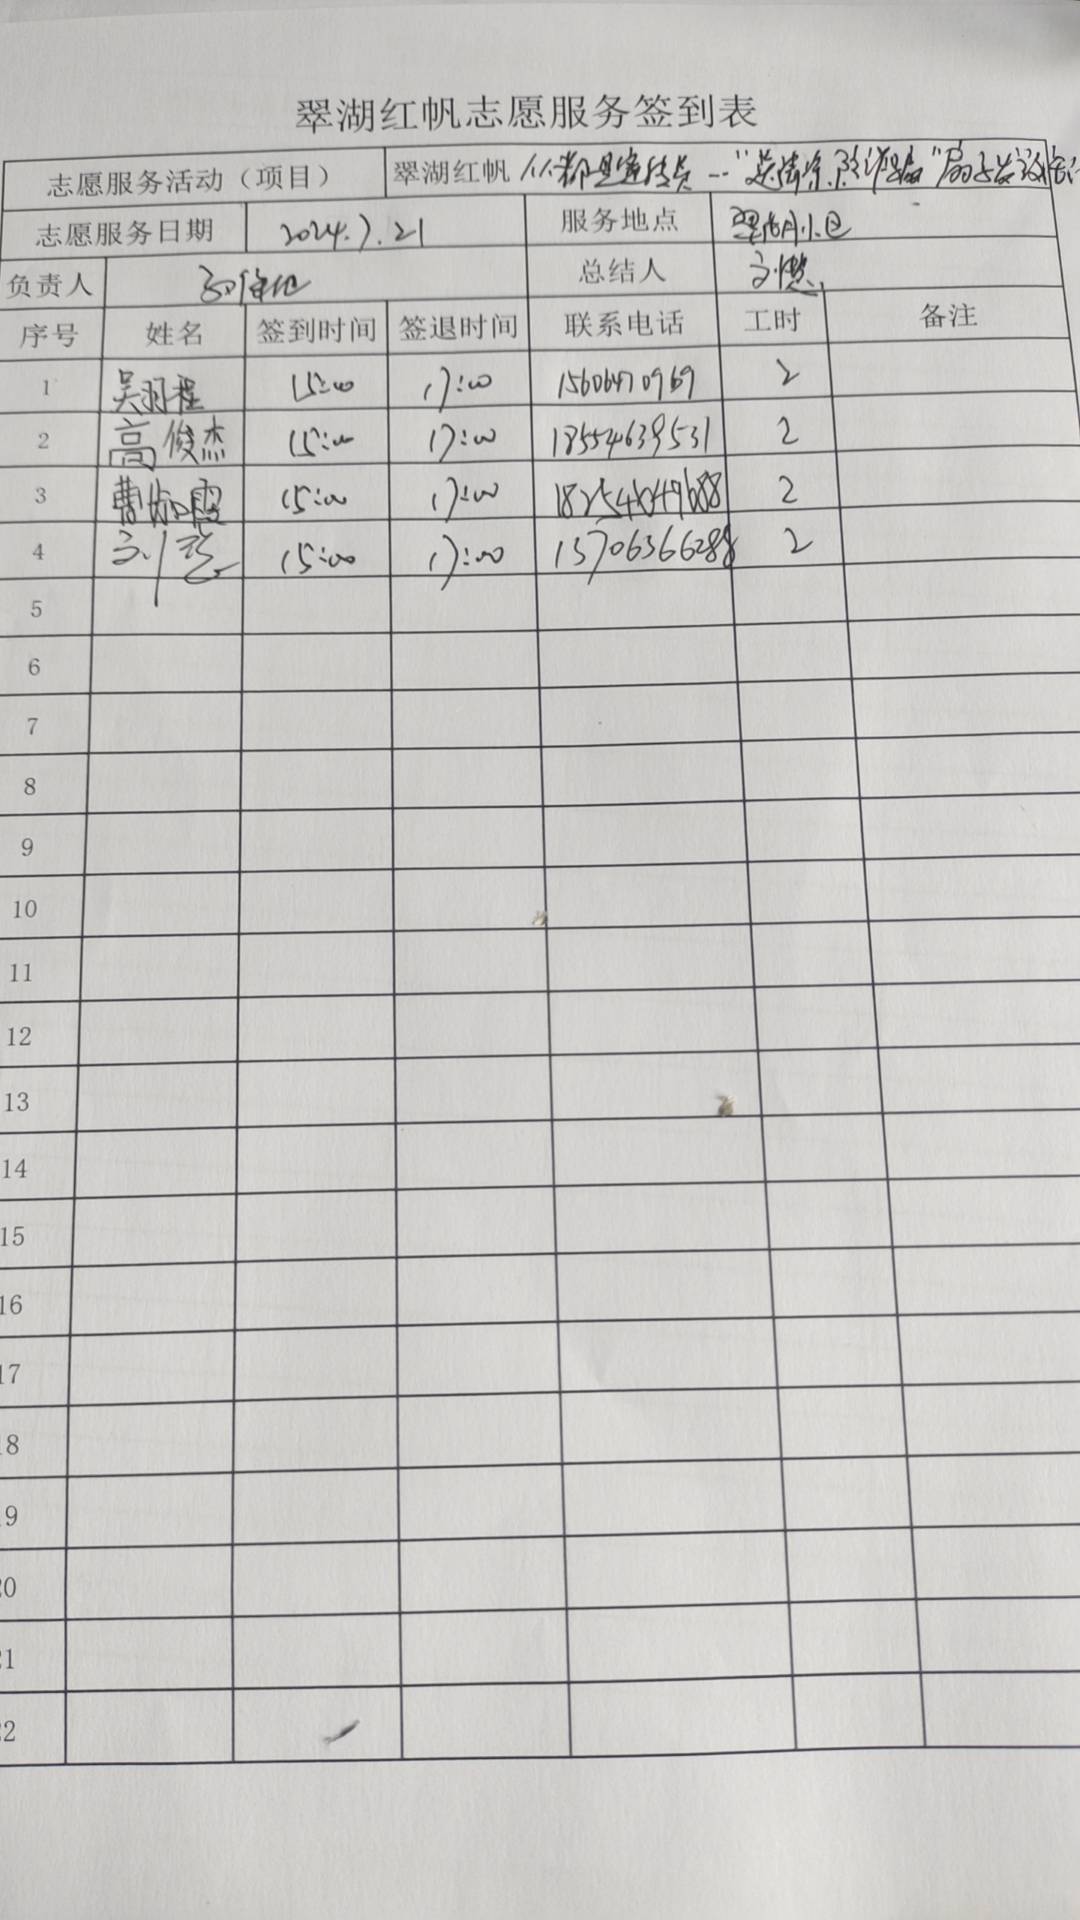 翠湖红帆志愿服务签到表
志愿服务活动（项目） 翠湖红帆 人人都是宣传员 "送清凉 防诈骗"扇子发放活
志愿服务日期 2024.7.21 服务地点 翠湖小区
负责人 总结人 刘慧
序号 姓名 签到时间 签退时间 联系电话 工时 备注
1 吴羽程 15:00 17:00 15606470969 2
2 高俊杰 15:00 17:00 18554639531 2
3 曹如霞 15:00 17:00 2
4 刘慧 15:00 17:00 2
5
6
7
8
9
10
11
12
13
14
15
16
17
18
19
20
21
22